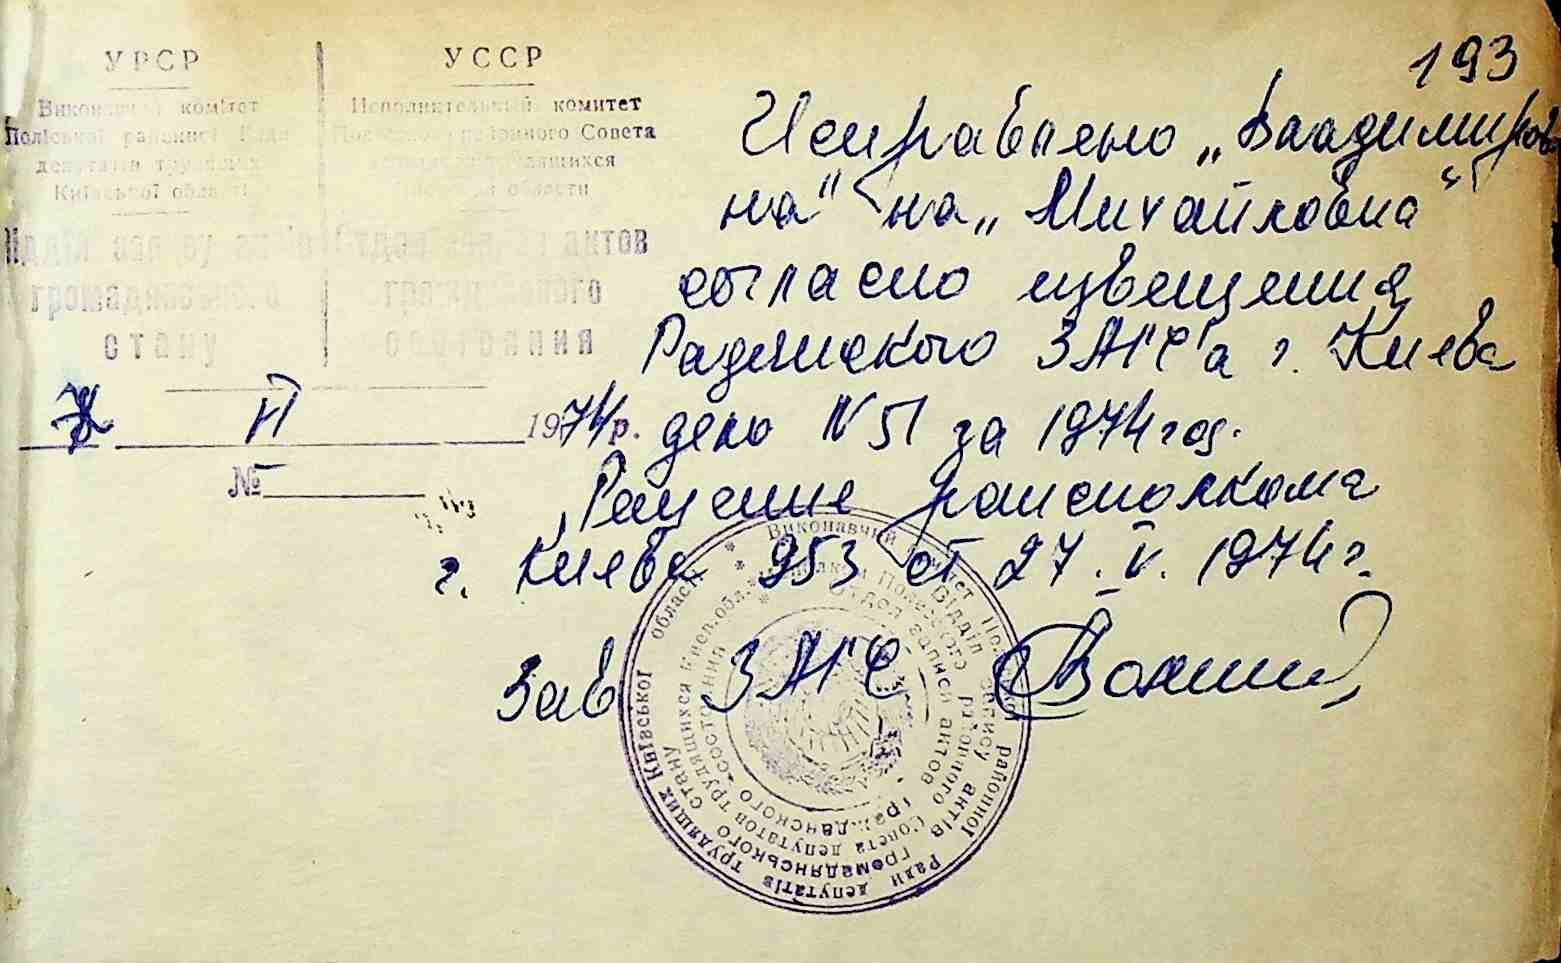 193
УРСР
Виконавчий комітет
Поліської районної Ради
депутатів трудящих
Київської області
Відділ запису актів
громадянського
стану
УССР
Исполнительный комитет
Полесского районного Совета
депутатов трудящихся
Киевской области
Отдел записи актов
гражданского
состояния
VI 1974 р.
№
Исправлено „Владимиров
на" на „Михайловна"
согласно извещения
Радянского ЗАГС'а г. Киева
дело N 51 за 1974 год.
Решение райисполкома
г. Киева 953 от 27. V. 1974 г.
Зав ЗАГС
Виконавчий комітет Поліської районної Ради депутатів трудящих Київської області
Відділ запису актів громадянського стану
Исполком Полесского районного Совета депутатов трудящихся Киев. обл.
Отдел записи актов гражданского состояния